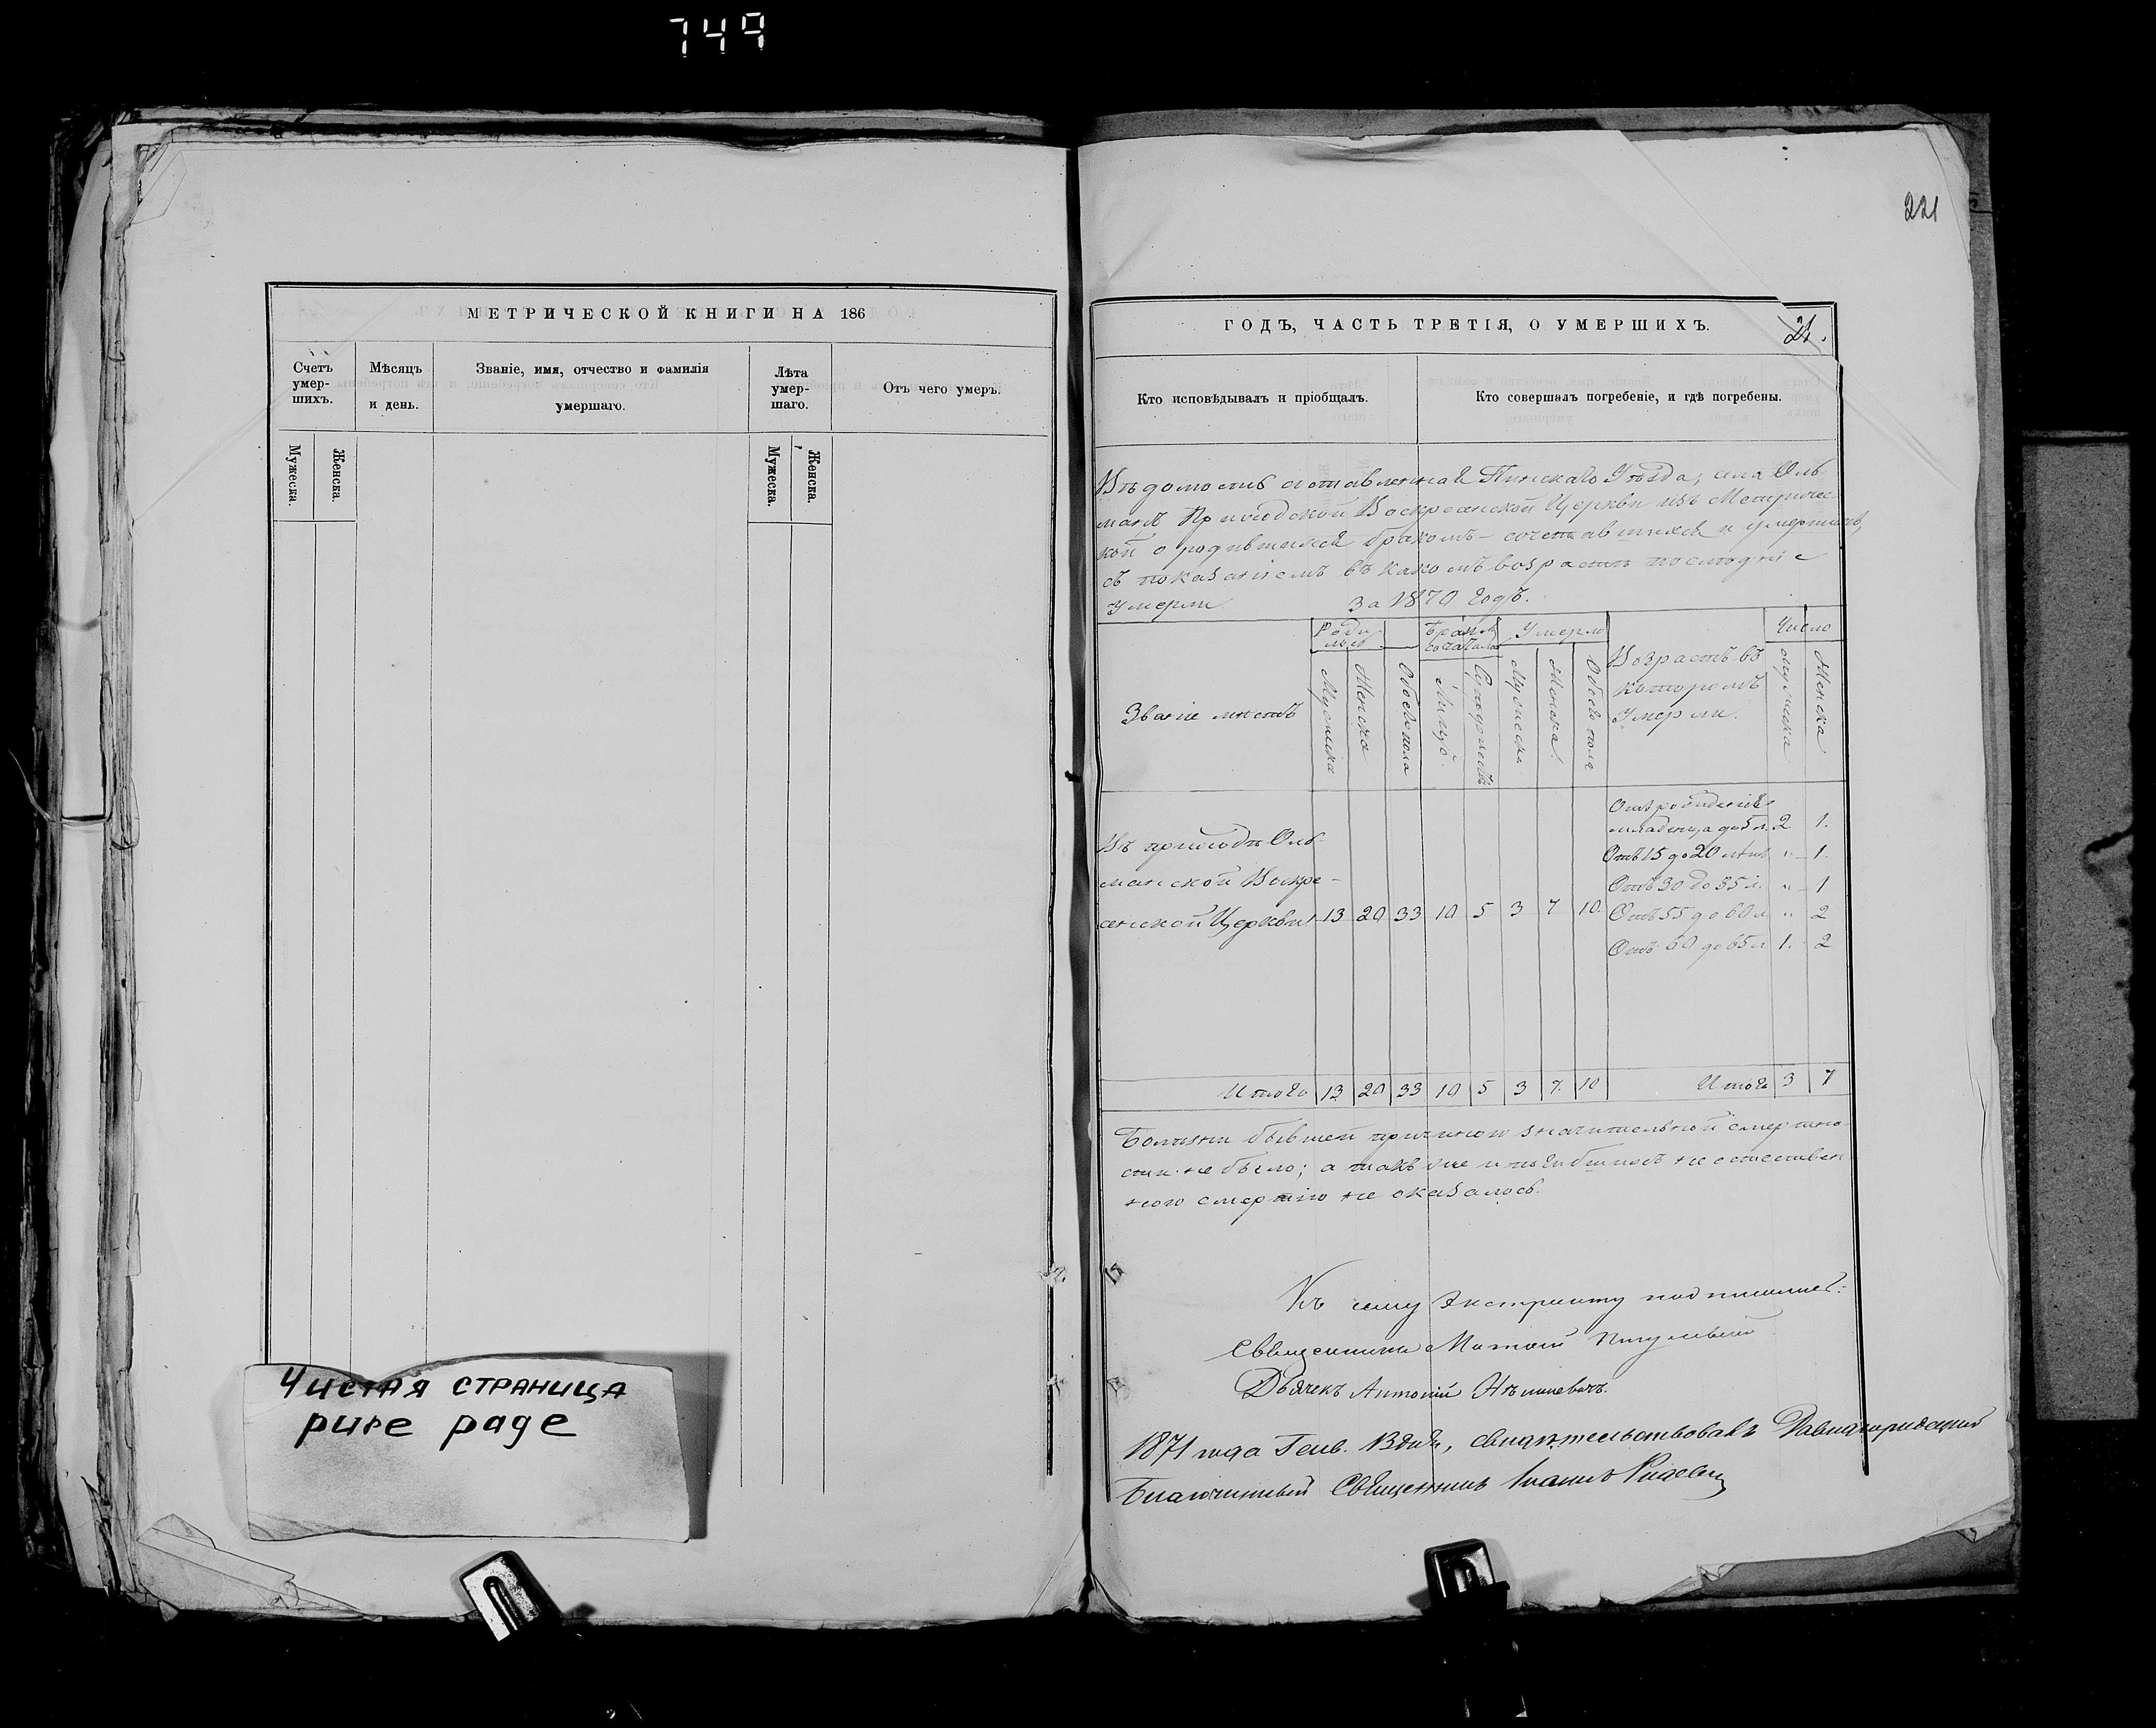 749
МЕТРИЧЕСКОЙ КНИГИ НА 186
Счетъ умер-шихъ.
Мѣсяцъ и день.
Званіе, имя, отчество и фамилія умершаго.
Лѣта умер-шаго.
Отъ чего умеръ.
Мужеска.
Женска.
Мужеска.
Женска.
Чистая страница
pure page
221
ГОДЪ, ЧАСТЬ ТРЕТІЯ, О УМЕРШИХЪ.
21.
Кто исповѣдывалъ и пріобщалъ.
Кто совершалъ погребеніе, и гдѣ погребены.
Вѣдомость составленная Пинскаго Уѣзда, села Оль-
манъ Приходской Воскресенской Церкви изъ Метричес-
кой о родившихся бракомъ-сочетавшихся и умершихъ,
съ показаніемъ въ какомъ возрастѣ послѣдніе
Умерли За 1870 годъ.
Званіе мѣстъ
Роди-лось
Мужеска
Женска
Обоего пола
Бракомъ
Лицъ
Супружествъ
Умерло
Мужеска
Женска
Обоего пола
Возрастъ въ которомъ Умерли.
Число
мужеска
Женска
Въ приходѣ Оль-
манской Воскре-
сенской Церкви 13 20 33 10 5 3 7 10
Отъ рожденія
младенца до 5 л. 2 1.
Отъ 15 до 20 лѣтъ " 1.
Отъ 30 до 35 л. " 1
Отъ 55 до 60 л. " 2
Отъ 60 до 65 л. 1. 2
Итого 13 20 33 10 5 3 7 10 Итого 3 7
Болѣзни бывшей причиною значительной смертно-
сти не было; а такъ же и погибшихъ не естествен
ною смертію не оказалось.
Къ сему Экстракту подписались:
Священникъ
Дьячекъ Антоній
1871 года Генв. 13 дня, свидѣтельствовалъ
Благочинный Священникъ Іоаннъ